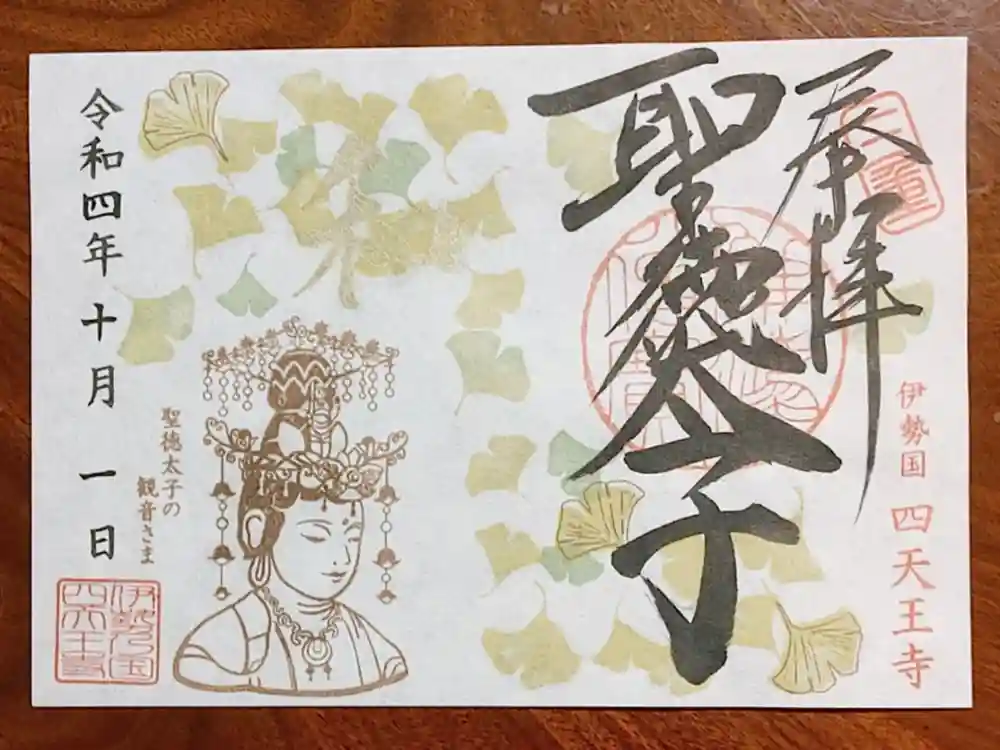 奉拝
聖徳太子
伊勢国 四天王寺
聖徳太子の
観音さま
令和四年十月一日
伊勢乃国
四天王寺